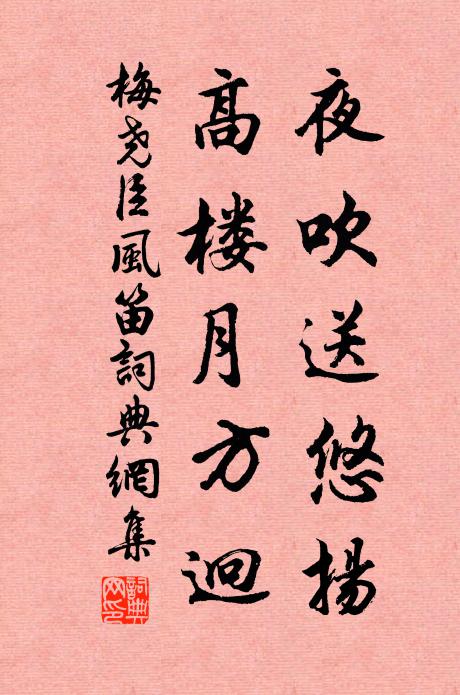 夜吹送悠揚
高楼月方迥
梅尧臣風笛詞典網集
詞典網印